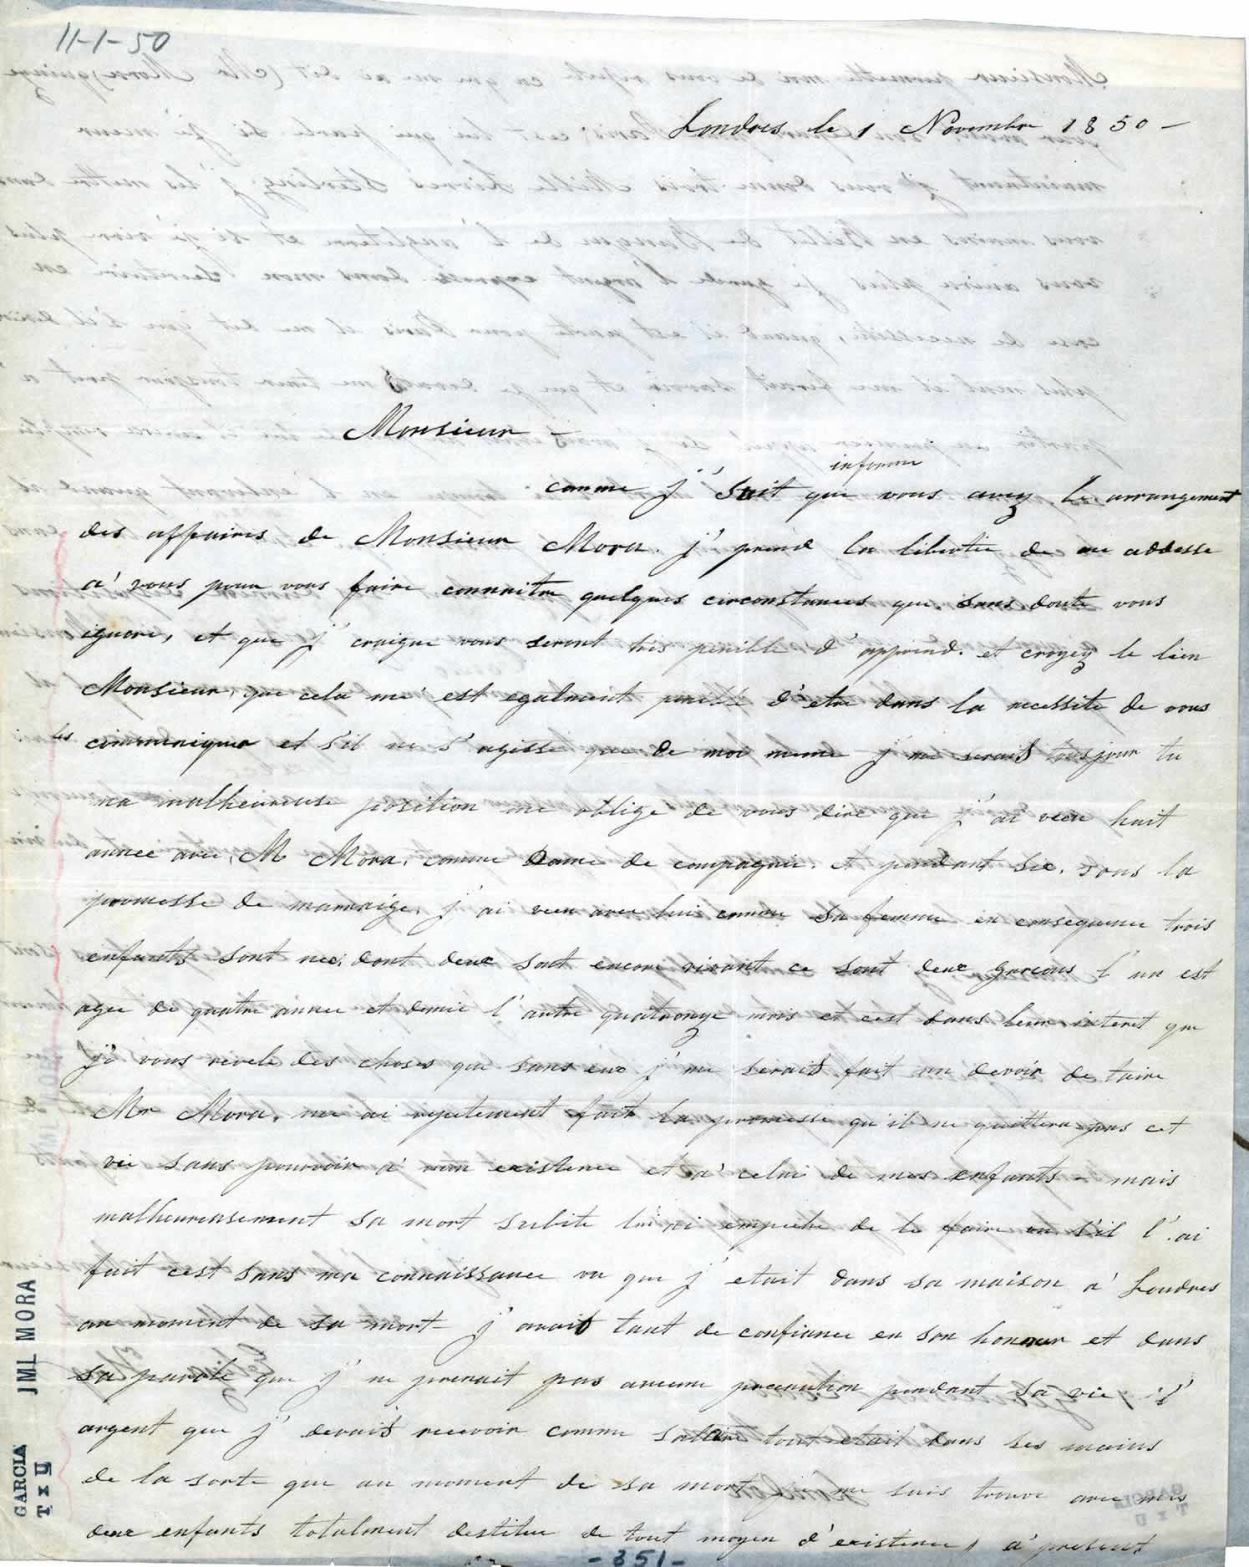 11-1-50
Londres le 1 Novembre 1850 -
Monsieur -
informe
comme j' suit que vous avez le arrangement
des affaires de Monsieur Mora. j' prend la libertie de me addesse
a' vous pour vous faire connaitre quelques circonstances que sans doute vous
ignore, et que j' craigne vous seront tres penible d' apprend. et croyez le bien
Monsieur, que cela me' est egalment penible d'etre dans la necessite de vous
les communiquer et s'il ne s'agisse que de moi meme j' me serait toujour tu
ma malheureuse position me oblige de vous dire que j' ai vecu huit
annee avec, M Mora, comme Dame de compagnie. et pendant six, sous la
promesse de marraige, j' ai vecu avec lui comme sa femme en consequence trois
enfants sont nee, dont deux sont encore vivant ce sont deux garcons l'un est
agee de quatre annee et demie l'autre quatorze mois et cest dans leur interet que
j' vous revele des choses que sans eux j' me serait fait un devoir de taire
Mr Mora, me ai repetement fait la promesse qu'il ne quittera pas cet
vie sans pourvoir a' mon existence et a' celui de mes enfants - mais
malheureusement sa mort subite lui ai empeche de le faire ou s'il l'ai
fait cest sans ma connaissance vu que j' etait dans sa maison a' Londres
au moment de sa mort - j' avait tant de confiance en son honneur et dans
sa parole que j' ne prenait pas aucune precaution pendant sa vie, l'
argent que j' devait recevoir comme salaire tout etait dans ses mains
de la sorte que au moment de sa mort je me suis trouve avec mes
deux enfants totalment destitue de tout moyen d'existence, a' present
-351-
JML MORA
GARCIA
T x U